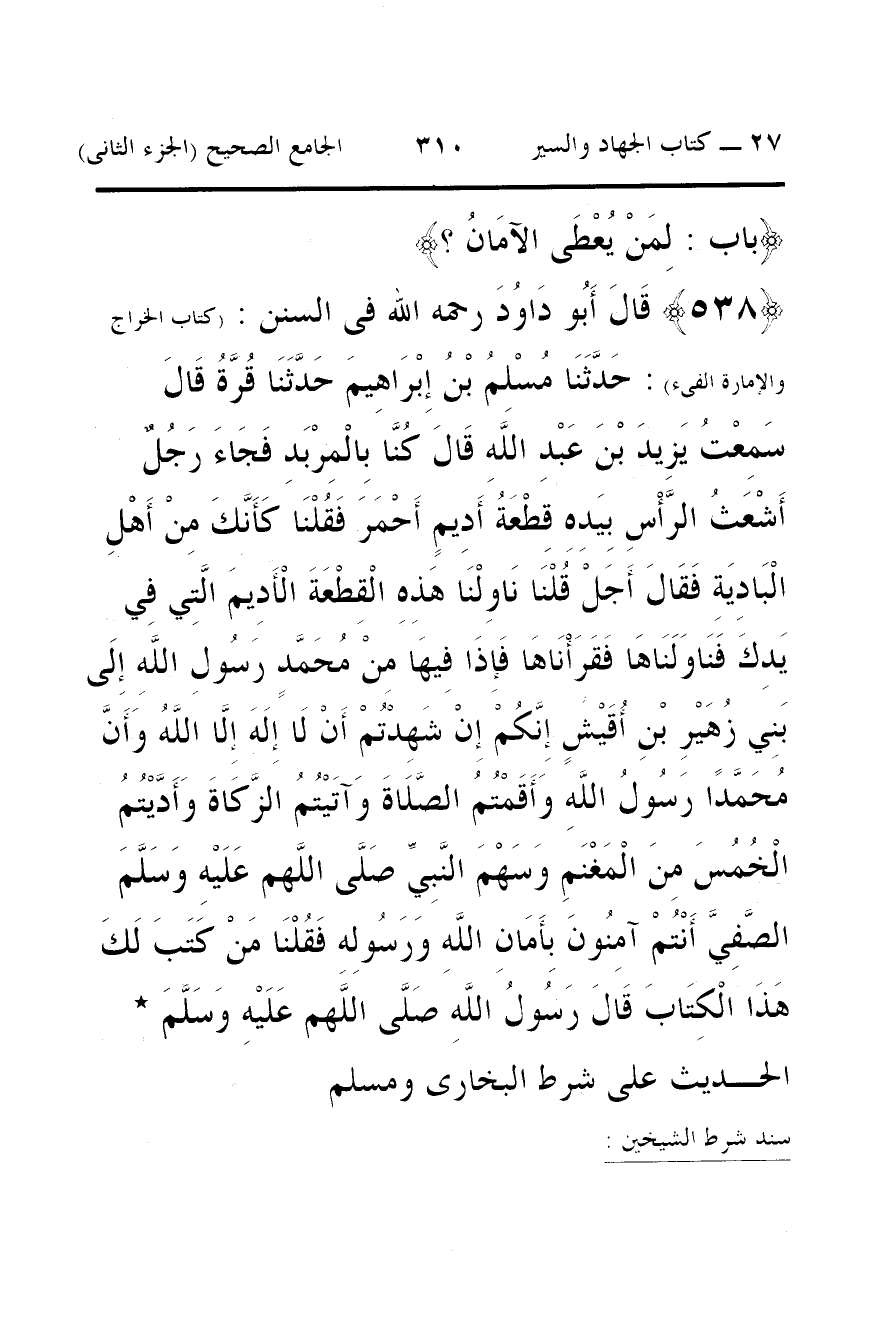 ٢٧ ــ كتاب الجهاد والسير ٣١٠ الجامع الصحيح (الجزء الثانى)
﴿باب : لِمَنْ يُعْطَى الآمَانُ ؟﴾
﴿٥٣٨﴾ قَالَ أَبُو دَاوُدَ رحمه الله فى السنن : (كتاب الخراج
والإمارة الفىء) : حَدَّثَنَا مُسْلِمُ بْنُ إِبْرَاهِيمَ حَدَّثَنَا قُرَّةُ قَالَ
سَمِعْتُ يَزِيدَ بْنَ عَبْدِ اللَّهِ قَالَ كُنَّا بِالْمِرْبَدِ فَجَاءَ رَجُلٌ
أَشْعَثُ الرَّأْسِ بِيَدِهِ قِطْعَةُ أَدِيمٍ أَحْمَرَ فَقُلْنَا كَأَنَّكَ مِنْ أَهْلِ
الْبَادِيَةِ فَقَالَ أَجَلْ قُلْنَا نَاوِلْنَا هَذِهِ الْقِطْعَةَ الْأَدِيمَ الَّتِي فِي
يَدِكَ فَنَاوَلَنَاهَا فَقَرَأْنَاهَا فَإِذَا فِيهَا مِنْ مُحَمَّدٍ رَسُولِ اللَّهِ إِلَى
بَنِي زُهَيْرِ بْنِ أُقَيْشٍ إِنَّكُمْ إِنْ شَهِدْتُمْ أَنْ لَا إِلَهَ إِلَّا اللَّهُ وَأَنَّ
مُحَمَّدًا رَسُولُ اللَّهِ وَأَقَمْتُمُ الصَّلَاةَ وَآتَيْتُمُ الزَّكَاةَ وَأَدَّيْتُمُ
الْخُمُسَ مِنَ الْمَغْنَمِ وَسَهْمَ النَّبِيِّ صَلَّى اللَّهم عَلَيْهِ وَسَلَّمَ
الصَّفِيَّ أَنْتُمْ آمِنُونَ بِأَمَانِ اللَّهِ وَرَسُولِهِ فَقُلْنَا مَنْ كَتَبَ لَكَ
هَذَا الْكِتَابَ قَالَ رَسُولُ اللَّهِ صَلَّى اللَّهم عَلَيْهِ وَسَلَّمَ *
الحـــديث على شرط البخارى ومسلم
سند شرط الشيخين :